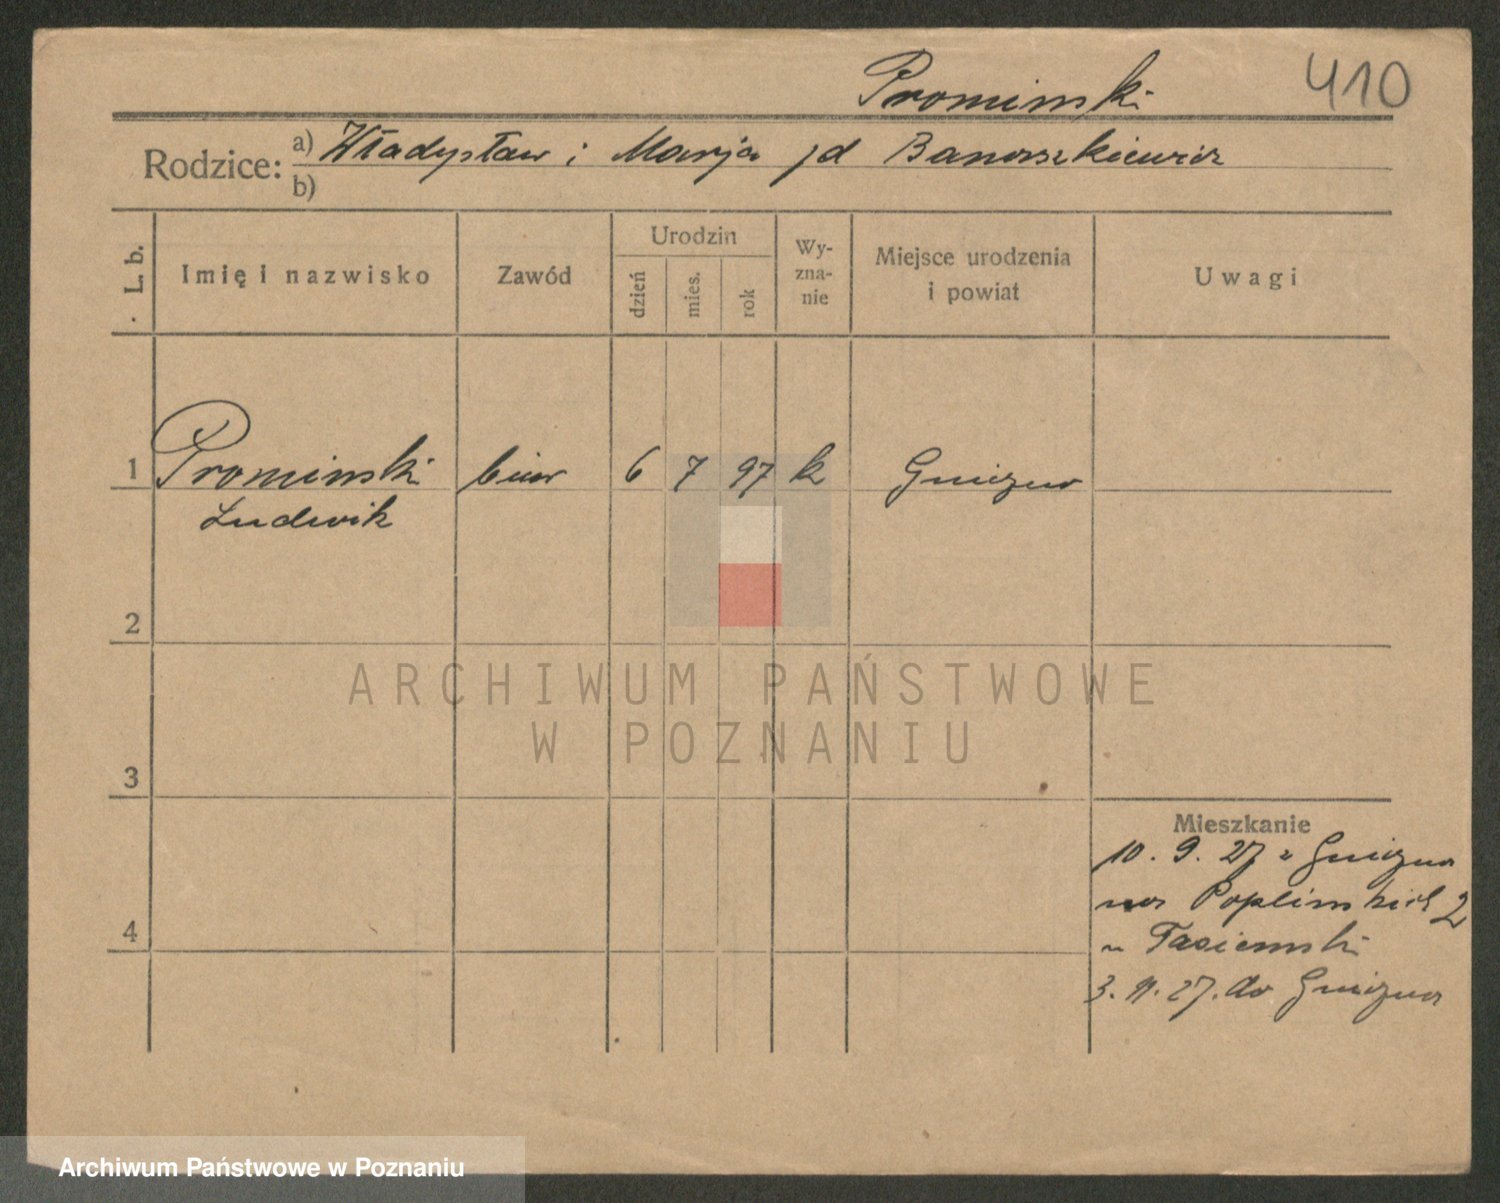 410
Prominski
Rodzice: a) Władysław i Marja jd Banaszkiewicz
b)
L. b.
Imię i nazwisko
Zawód
Urodzin
dzień
mies.
rok
Wy-
zna-
nie
Miejsce urodzenia
i powiat
Uwagi
1 Prominski 6 7 97 k Gniezno
Ludwik
2
3
4
Mieszkanie
10. 9. 27 z Gniezna
Poplinskich 2
u Tasiemski
3. 11. 27. do Gniezna
ARCHIWUM PAŃSTWOWE
W POZNANIU
Archiwum Państwowe w Poznaniu